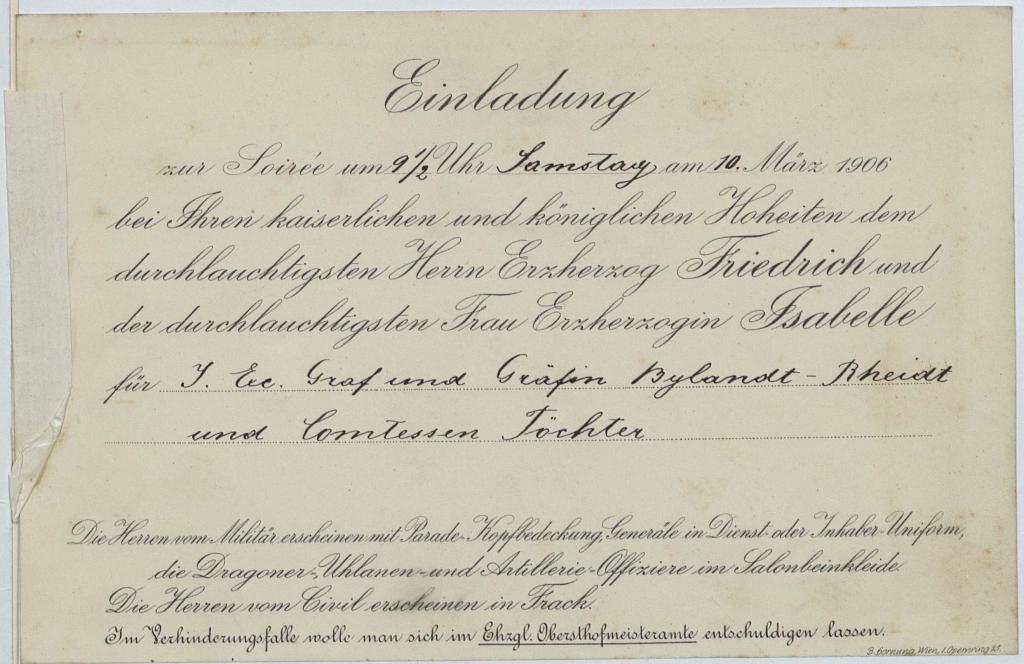 Einladung
zur Soirée um 9 1/2 Uhr Samstag am 10. März 1906
bei Ihren kaiserlichen und königlichen Hoheiten dem
durchlauchtigsten Herrn Erzherzog Friedrich und
der durchlauchtigsten Frau Erzherzogin Isabelle
für I. Exc. Graf und Gräfin Bylandt-Rheidt
und Comtessen Töchter
Die Herren vom Militär erscheinen mit Parade-Kopfbedeckung, Generäle in Dienst- oder Inhaber-Uniform,
die Dragoner-, Uhlanen- und Artillerie-Offiziere im Salonbeinkleide.
Die Herren vom Civil erscheinen in Frack.
Im Verhinderungsfalle wolle man sich im Ehzgl. Obersthofmeisteramte entschuldigen lassen.
Wien, I. Opernring